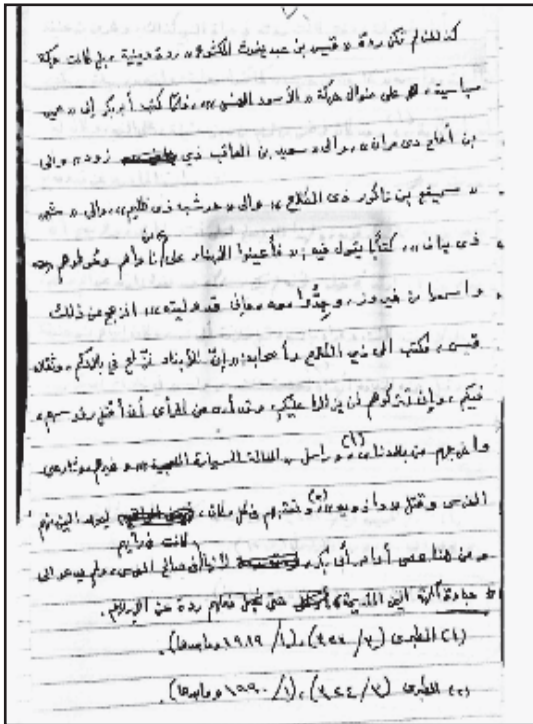 كذلك لم تكن ردة « قيس بن عبد يغوث المكشوح » ردة دينية، بل كانت حركة
سياسية، هو على منوال حركة « الأسود العنسي »، فلما كتب أبو بكر إلى « عمير
بن أفلح ذي مران »، وإلى « سعيد بن العاقب ذي زود » وإلى
« سميفع بن ناكور ذي الكلاع »، وإلى « حوشب ذي ظليم »، وإلى « شهر
ذي يناف »، كتابًا يقول فيه: « فأعينوا الأبناء على من ناوأهم وحوطوهم
واسمعوا من فيروز، وجِدُّوا معه، فإني قد وليته »، انزعج من ذلك
قيس، فكتب إلى ذي الكلاع وأصحابه: « إنّ الأبناء نزّاع في بلادكم، ونقلاء
فيكم، وإن تتركوهم لن يزالوا عليكم، وقد أرى من الرأي أن أقتل رؤوسهم،
وأخرجهم من بلادنا »(١)، وراسل « القالة السيارة اللحجية » وغيرهم
الفرس وقتل « داذويه »(٢) وتتبعهم في كل مكان، ليعود اليمن لهم
ومن هنا عصى أوامر أبي بكر لأنها كانت في رأيهم في صالح الفرس، ولم يدعو إلى
عبادة آلهة اليمن القديمة حتى نجعل فعلهم ردة عن الإسلام.
(١) الطبري (٣/٣٢٣)، (١/١٩٨٩ وما بعدها).
(٢) الطبري (٣/٣٢٤)، (١/١٩٩٠ وما بعدها).